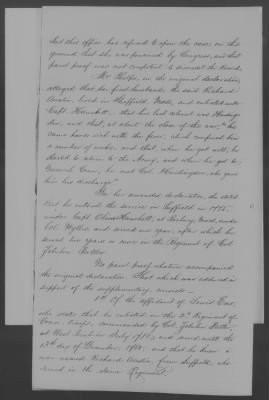 But this office has refused to open the case, on the
ground that she was pensioned by Congress, and that
parol proof was not competent to discredit the Record.
Mrs. Phelps, in the original declaration,
alleged that her first husband, the said Richard
Austin, lived in Sheffield, Mass, and enlisted under
Capt. that his last colonel was
and that, at about the close of the war, "he
came home sick with the fever, which confined him
a number of weeks; and that, when he got well, he
started to return to the Army, and when he got to
he met Col. who gave
him his discharge."
In her amended declaration, she states
that he entered the service in Sheffield in 1775,
under Capt. at Roxbury, Mass, under
Col. and served one year, after which he
served two years or more in the Regiment of Col.
Zebulon Butler.
No parol proof whatever accompanied
the original declaration. That which was adduced in
support of the supplementary, consists
1st Of the affidavit of Lewis
who states that he enlisted in the Regiment of
Conn. troops, commanded by Col. Zebulon Butler,
at West Point in and served until the
day of December and that he knew a
man named Richard Austin, from Sheffield, who
served in the same Regiment.